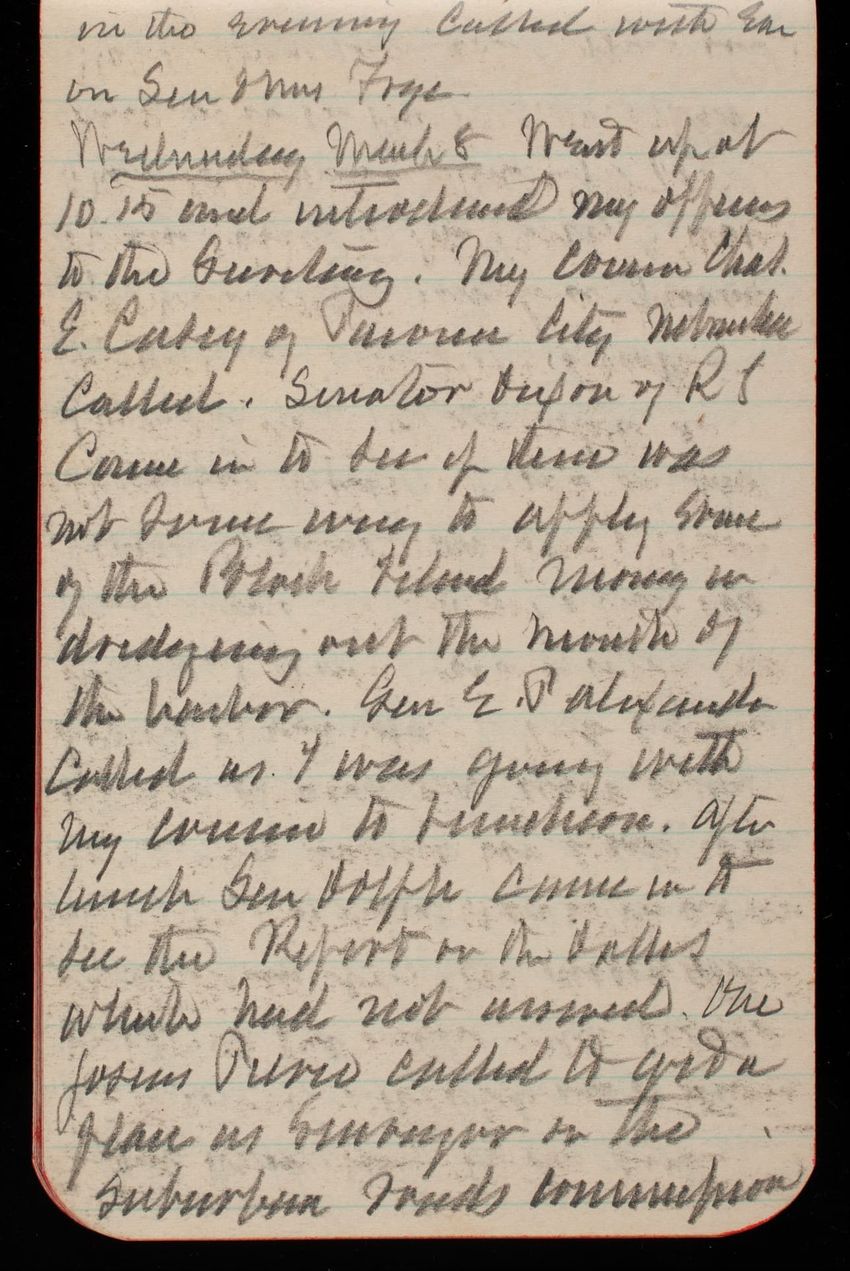 in the evening called with Eva
on Gen & Mrs Frye
Wednesday March 8 Went up at
10.15 and introduced my officers
to the Secretary. My Cousin Chas.
E. Casey of Pawnee City Nebraska
Called. Senator Dixon of R I
Came in to see if there was
not some way to apply some
of the Block Island money in
dredging out the mouth of
the harbor. Gen E. P Alexander
Called as I was going with
my cousin to luncheon. After
lunch Sen Dolph came in to
see the Report on the Dalles
which had not arrived. One
Joseus Pierce called to get a
place as Surveyor on the
Suburban roads commission